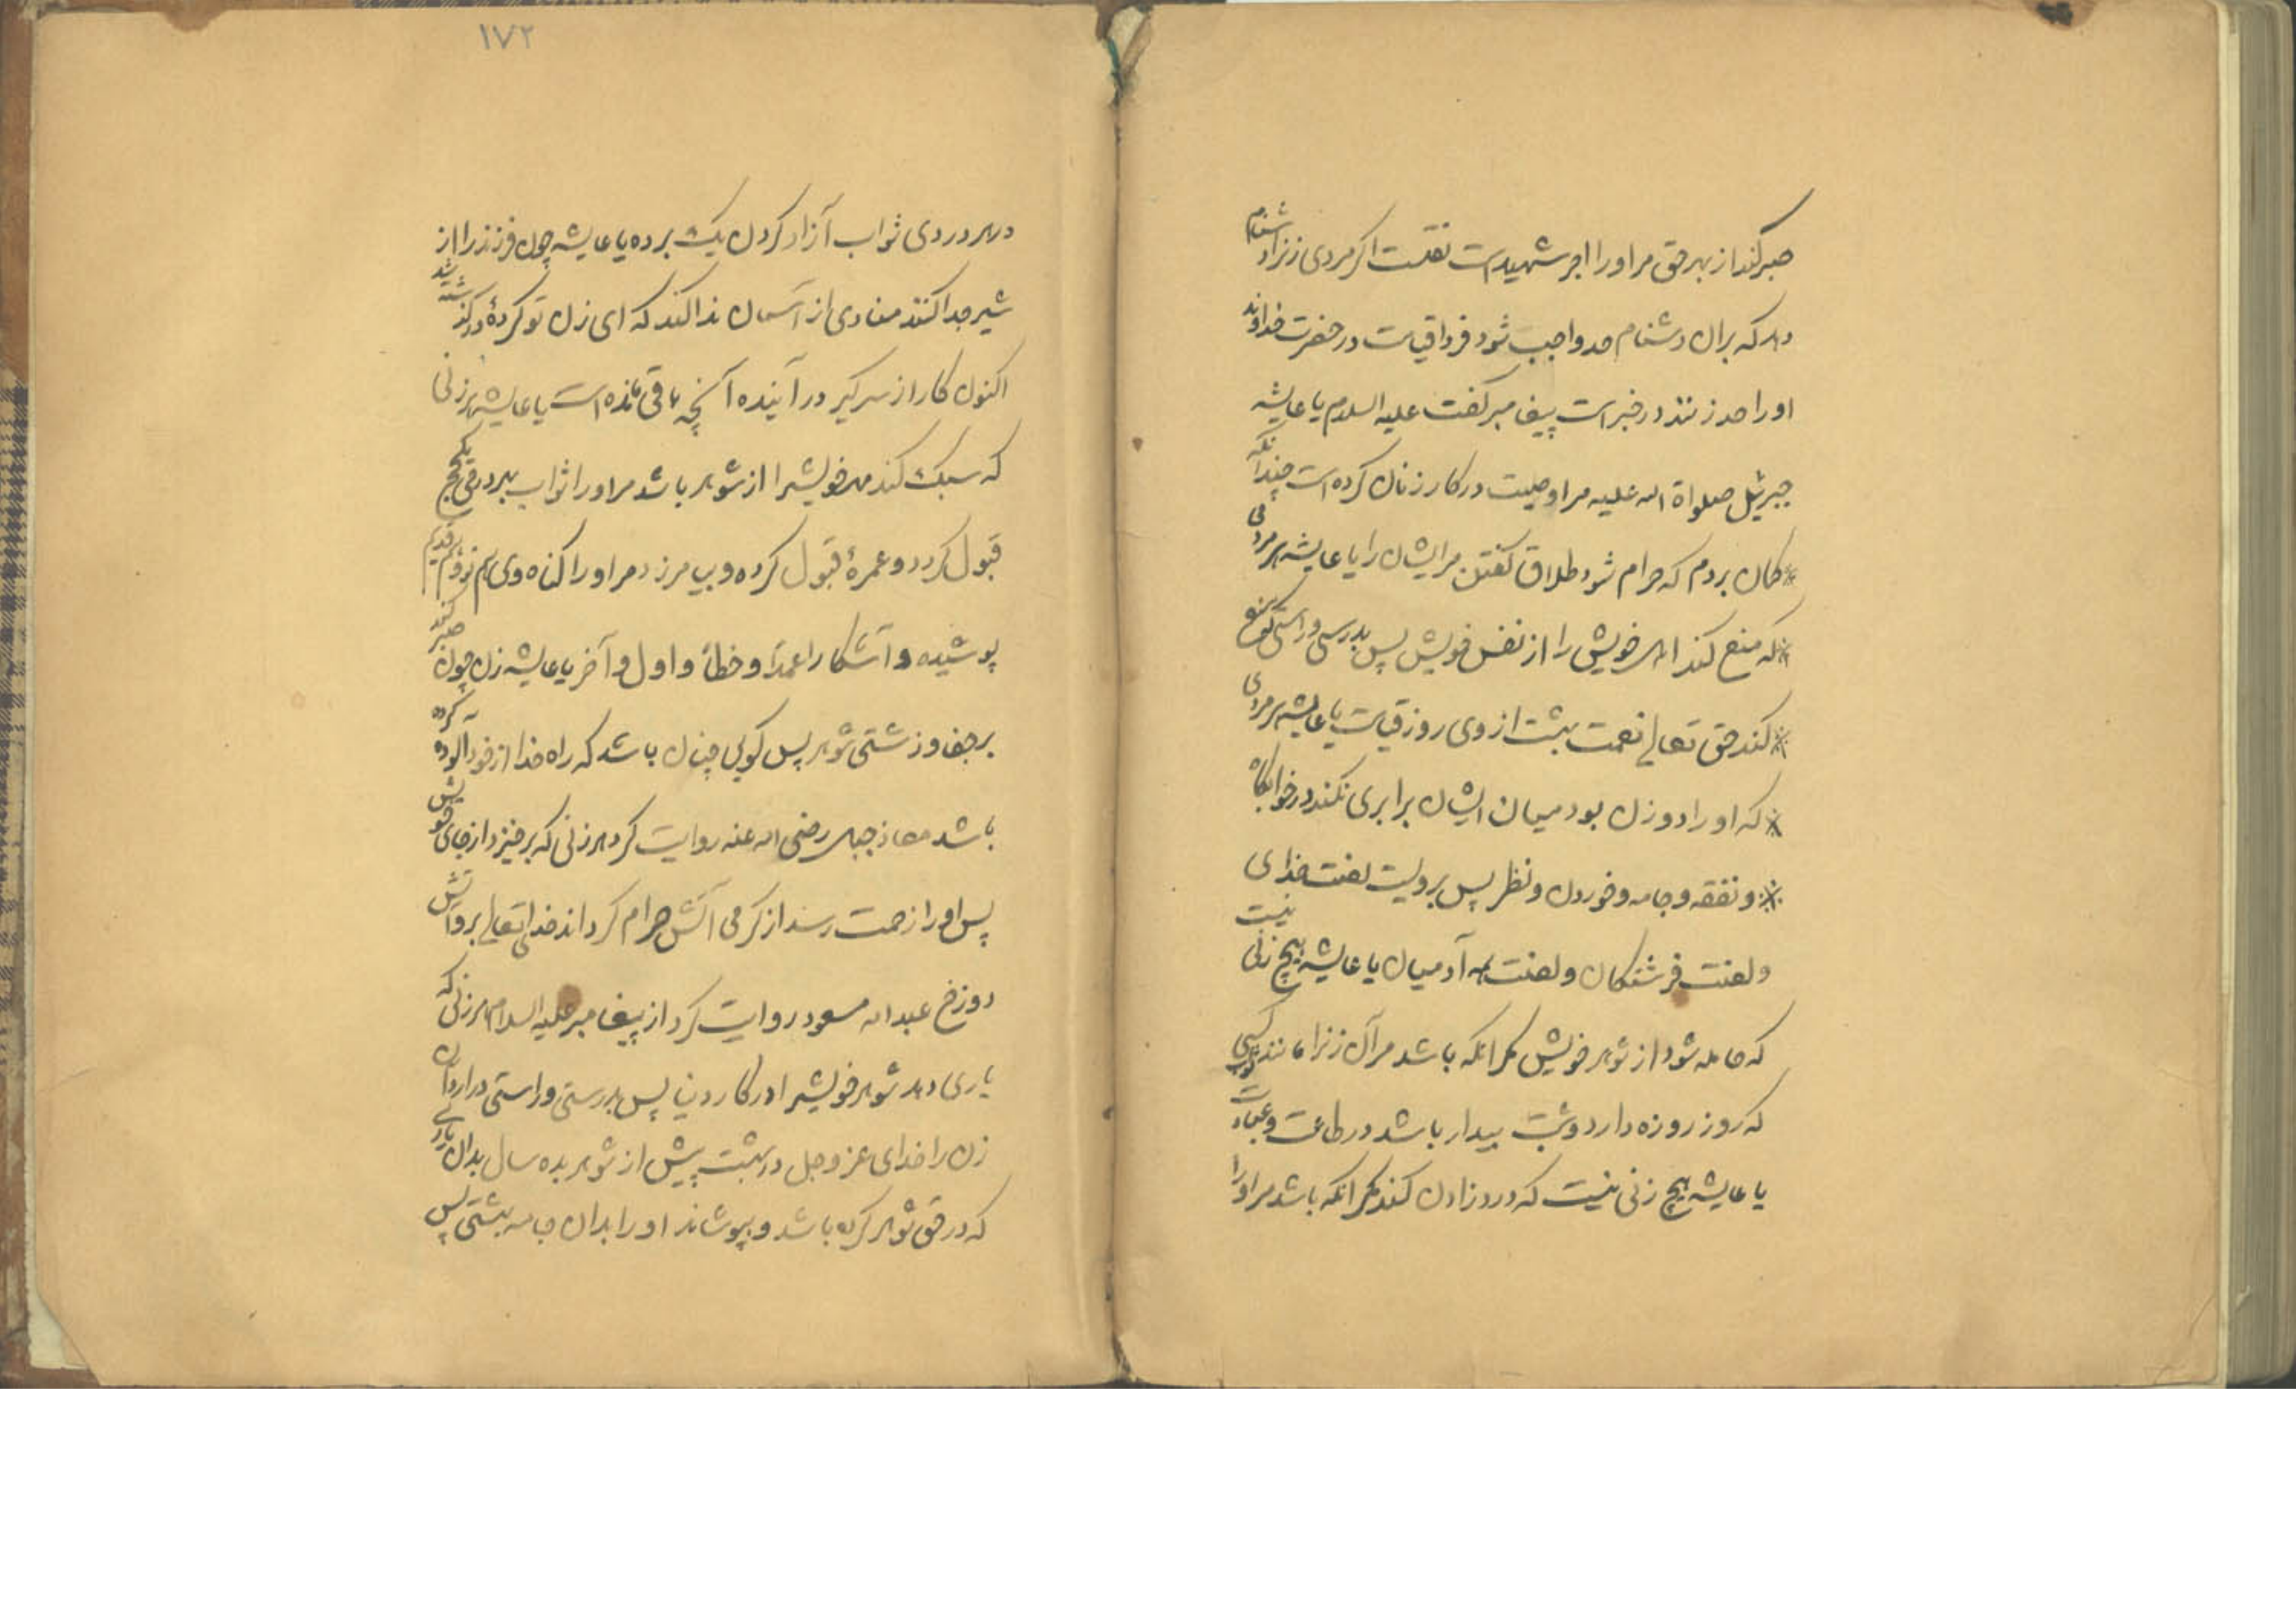 صبر کند از بهر حق مر او را اجر شهید است نقلست اکر مردی زنرا دشنام
دهد که بران دشنام حد واجب شود فردا قیامت در حضرت خداوند
او را حد زنند در خبر است پیغامبر کفت علیه السلام یا عایشه
جبرئیل صلواة الله علیه مرا وصیت در کار زنان کرده است چندانکه
کمان بردم که حرام شود طلاق کفتن مر ایشان را یا عایشه هر مردی
که منع کند اهل خویش را از نفس خویش پس بدرستی و راستی که منع
کند حق تعالی نعمت بهشت از وی روز قیامت یا عایشه هر مردی
که او را دو زن بود میان ایشان برابری نکند در خوابکاه
و نفقه و جامه و خوردن و نظر پس برویست لعنت خدای
و لعنت فرشتکان و لعنت همه آدمیان یا عایشه هیچ زنی نیست
که حامله شود از شوهر خویش مکر انکه باشد مر آن زنرا مانند ثواب کسی
که روز روزه دارد و شب بیدار باشد در طاعت و عبادت
یا عایشه هیچ زنی نیست که درد زادن کند مکر انکه باشد مر او را
۱۷۲
در هر دردی ثواب آزاد کردن یک برده یا عایشه چون فرزند را از
شیر جدا کنند منادی از آسمان ندا کند که ای زن تو کردهٔ در کذشته شد
اکنون کار از سر کیر در آینده آنچه باقی مانده است یا عایشه هر زنی
که سبک کند مهر خویشرا از شوهر باشد مر او را ثواب بهر درقی یکحج
قبول کردد و عمرهٔ قبول کرده و بیامرزد مر او را کناه وی هم نو و هم قدیم
پوشیده و آشکارا عمدًا و خطأ و اول و آخر یا عایشه زن چون صبر کند
بر جفا و زشتی شوهر پس کویی چنان باشد که راه خدا از خود آلوده کرده
باشد معاذ جبل رضی الله عنه روایت کرد هر زنی که برخیزد از جای خویش
پس او را زحمت رسد از کرمی آتش حرام کرداند خدای تعالی برو آتش
دوزخ عبد الله مسعود روایت کرد از پیغامبر علیه السلام هر زنی که
یاری دهد شوهر خویشرا در کار دین پس بدرستی و راستی در آرد آن
زن را خدای عز و جل در بهشت پیش از شوهر بده سال بدان یاریی
که در حق شوهر کرده باشد و بپوشاند او را بدان جامه بهشتی پس